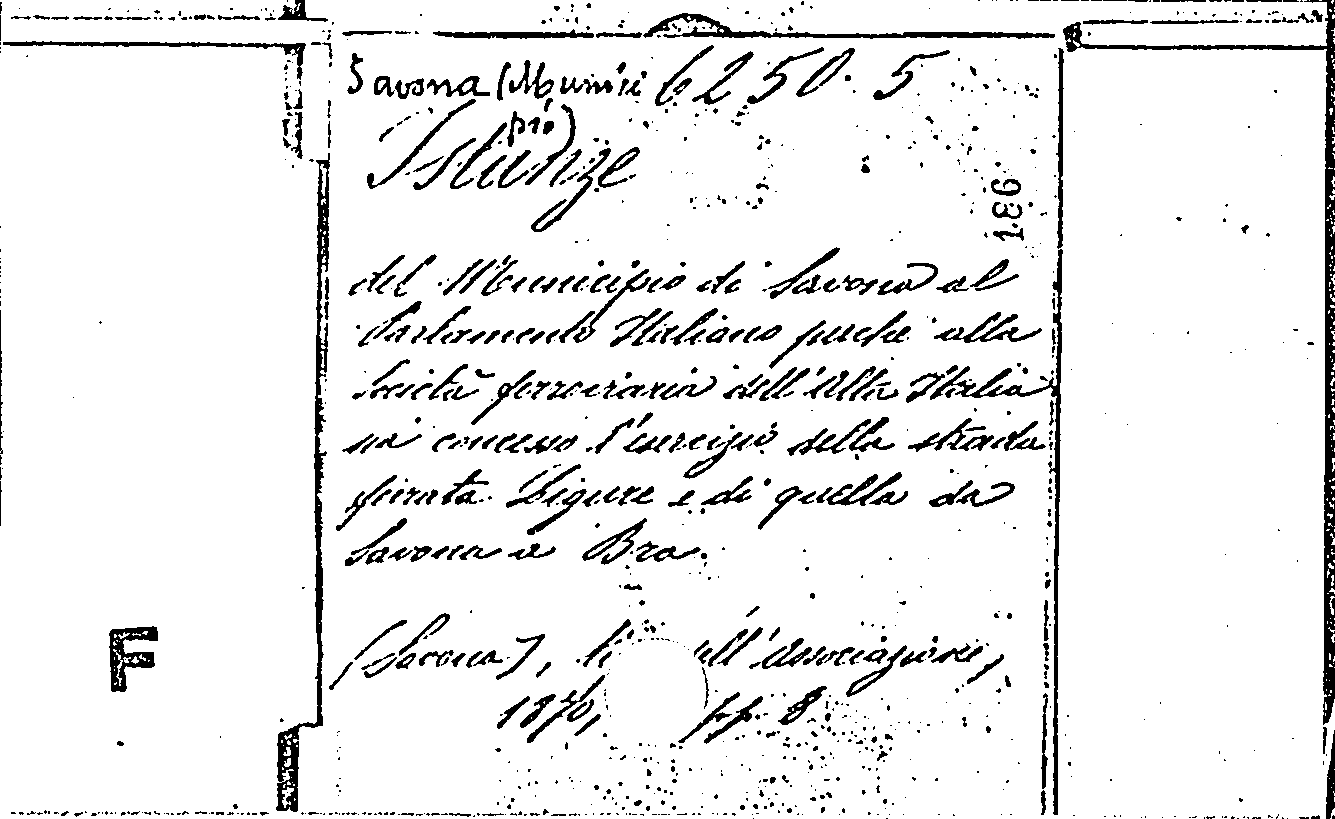 Savona (Munici 6250. 5
pio)
Istanze
931
del Municipio di Savona al
Parlamento Italiano perché alla
Società ferroviaria dell'Alta Italia
sia concesso l'esercizio della strada
ferrata Ligure e di quella da
Savona a Bra.
(Savona), ti dell'Associazione,
1870, pp. 8
F